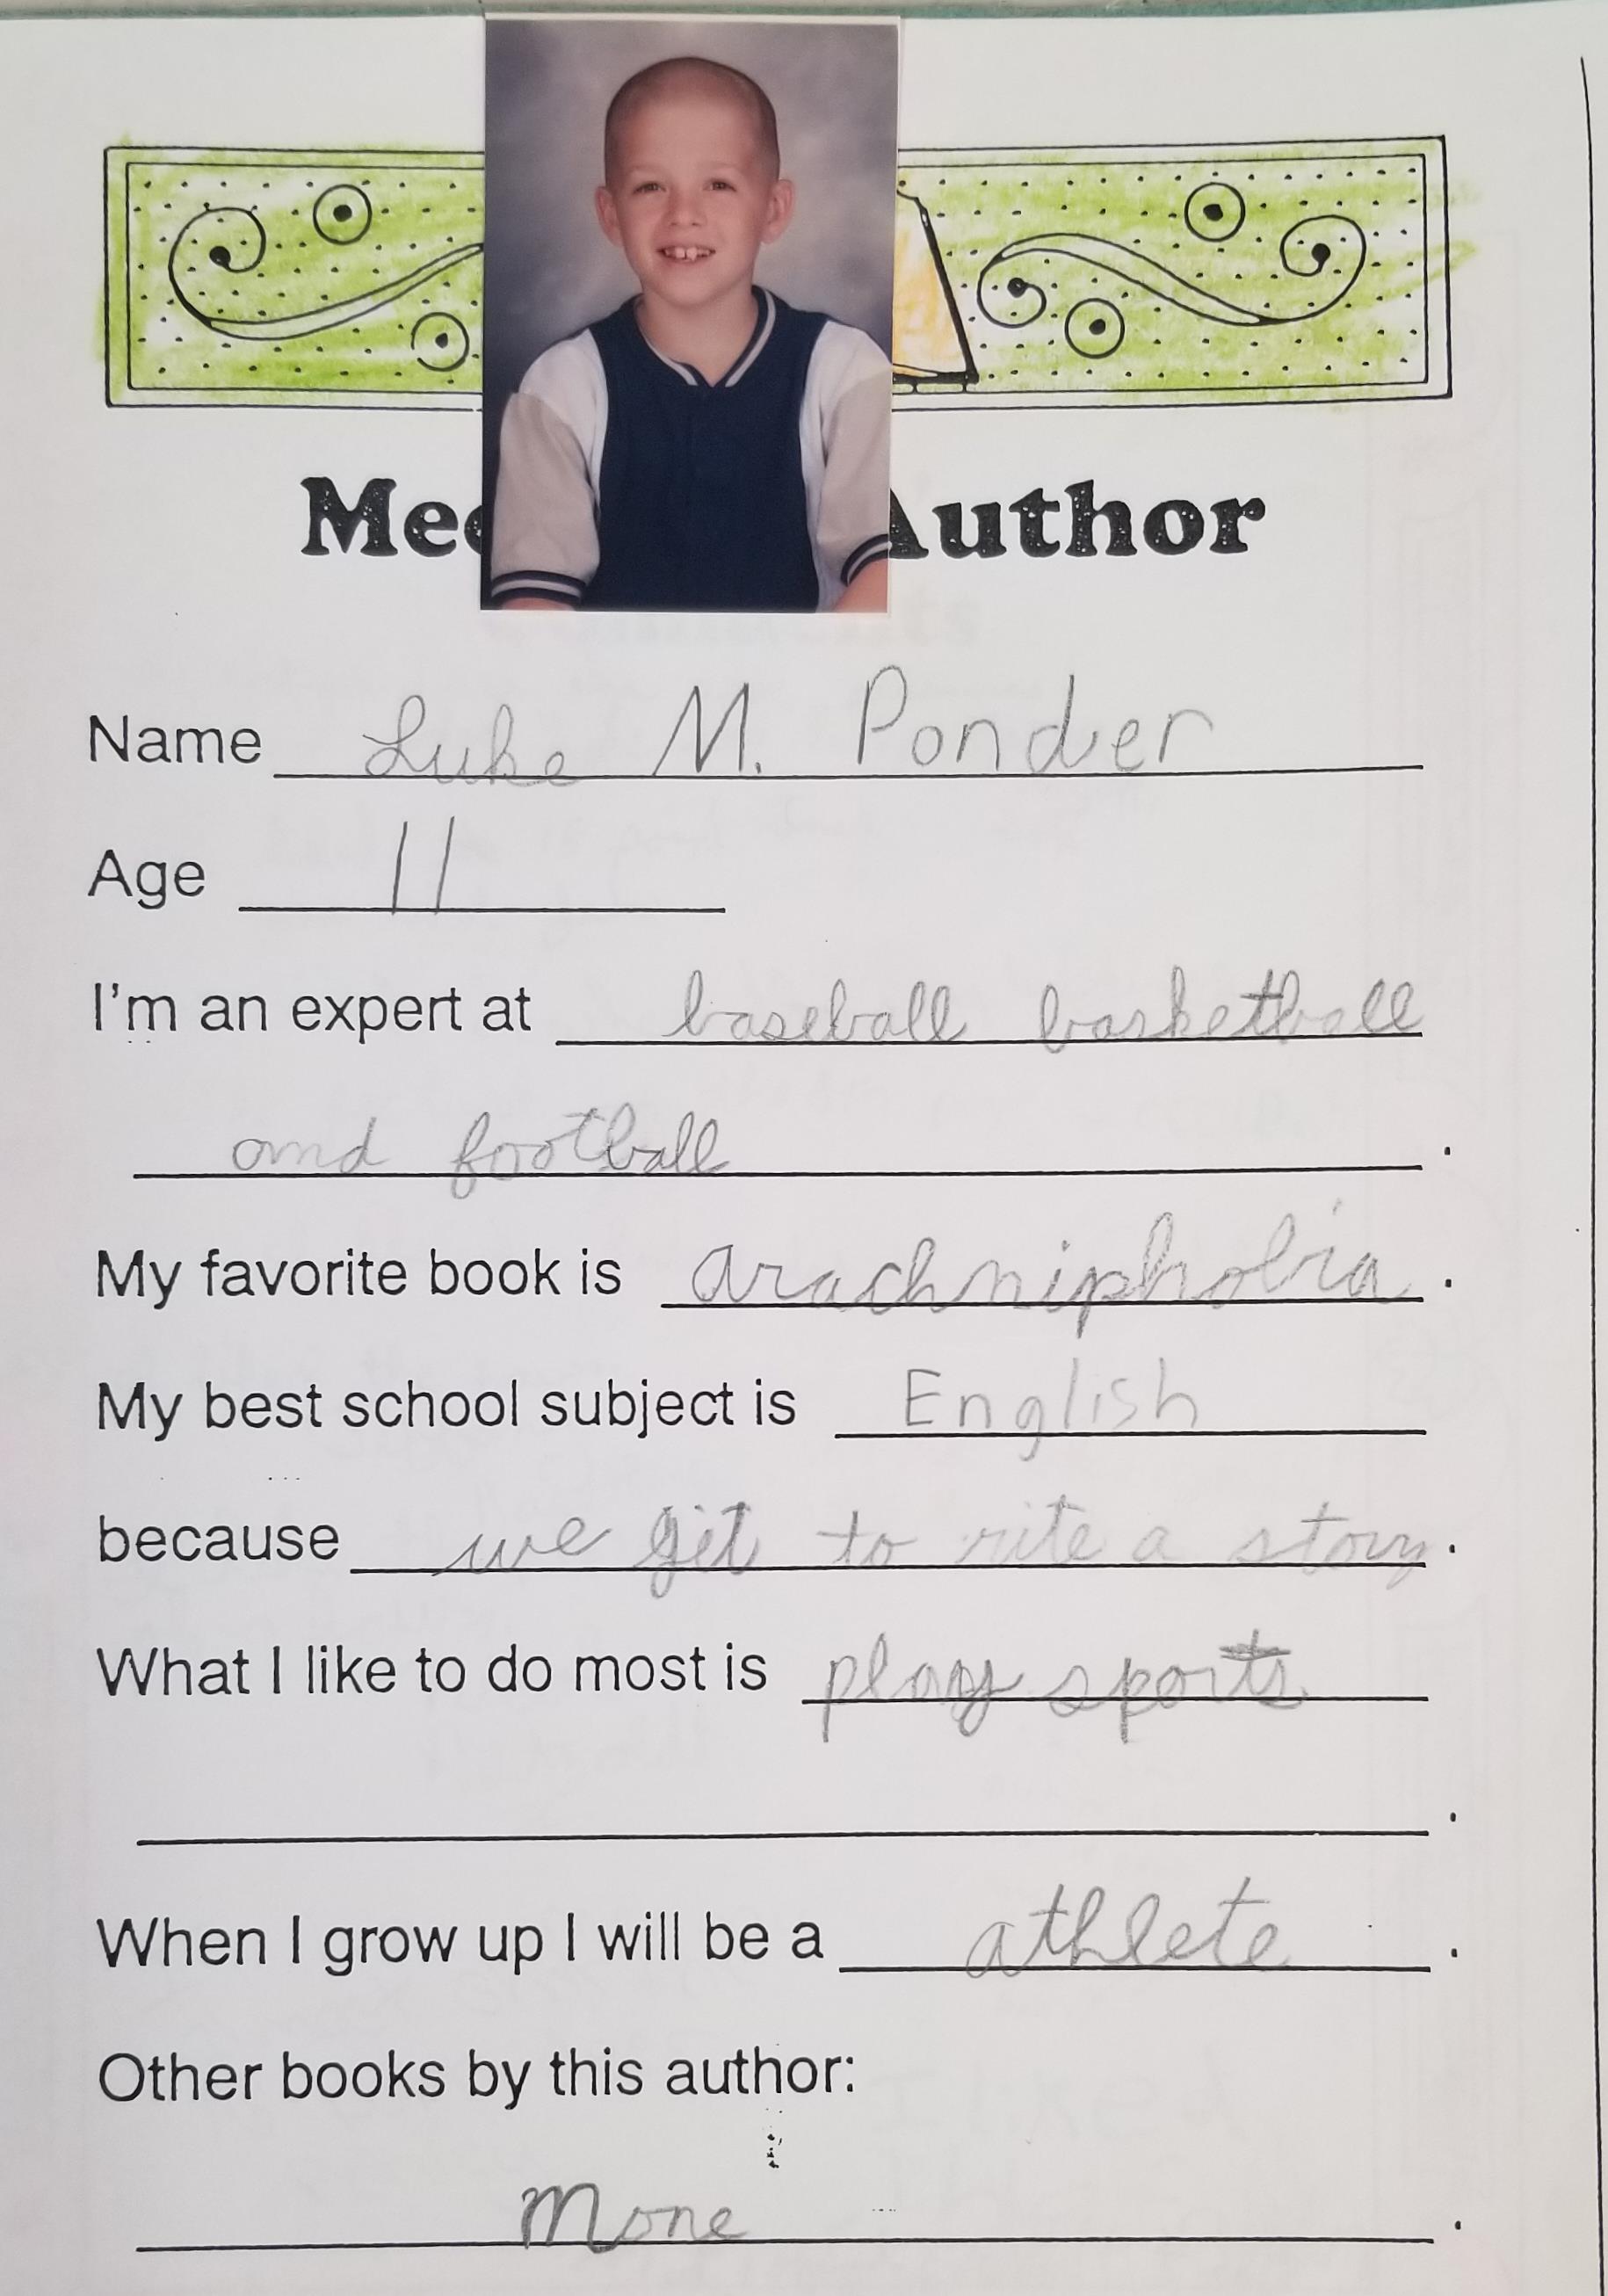 Mee Author
Name Luke M. Ponder
Age 11
I'm an expert at baseball basketball
and football .
My favorite book is arachniphobia .
My best school subject is English
because we git to rite a story .
What I like to do most is play sports
.
When I grow up I will be a athlete .
Other books by this author:
None .